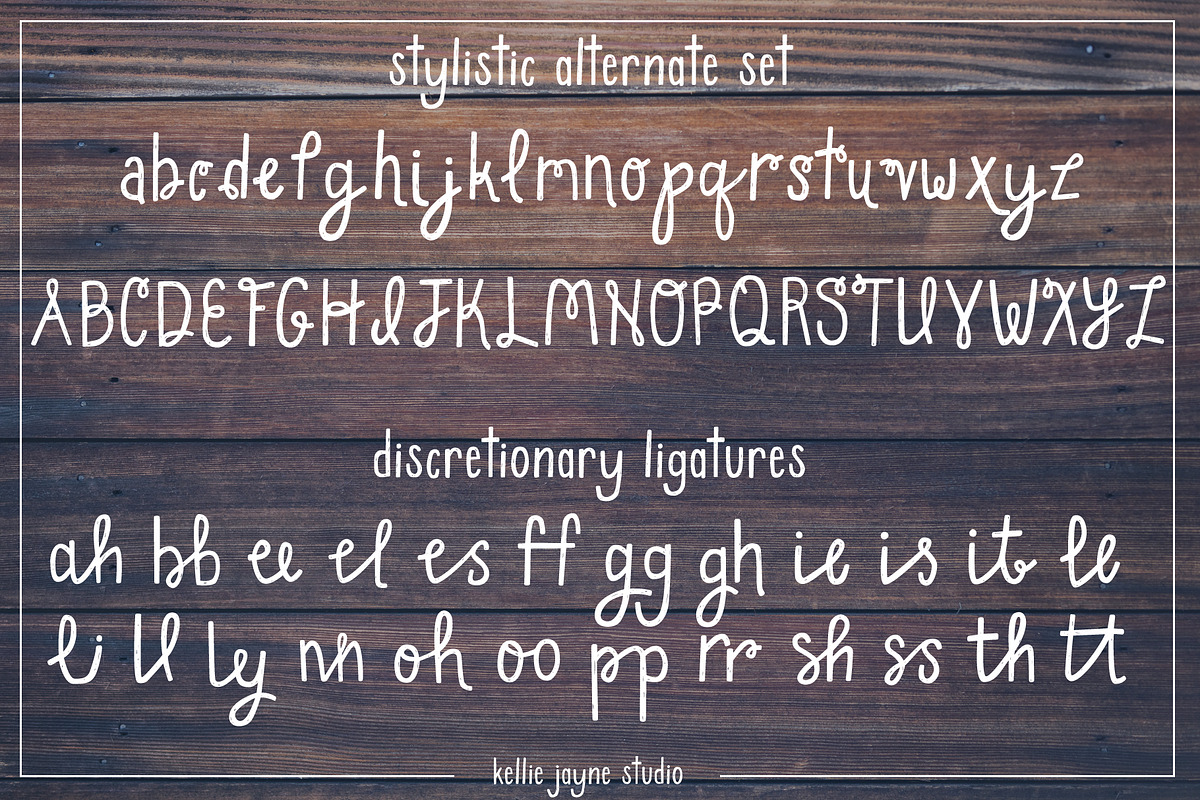 stylistic alternate set
abcdefghijklmnopqrstuvwxyz
ABCDEFGHIJKLMNOPQRSTUVWXYZ
discretionary ligatures
ah bb ee el es ff gg gh ie is it le
li ll ly nn oh oo pp rr sh ss th tt
kellie jayne studio